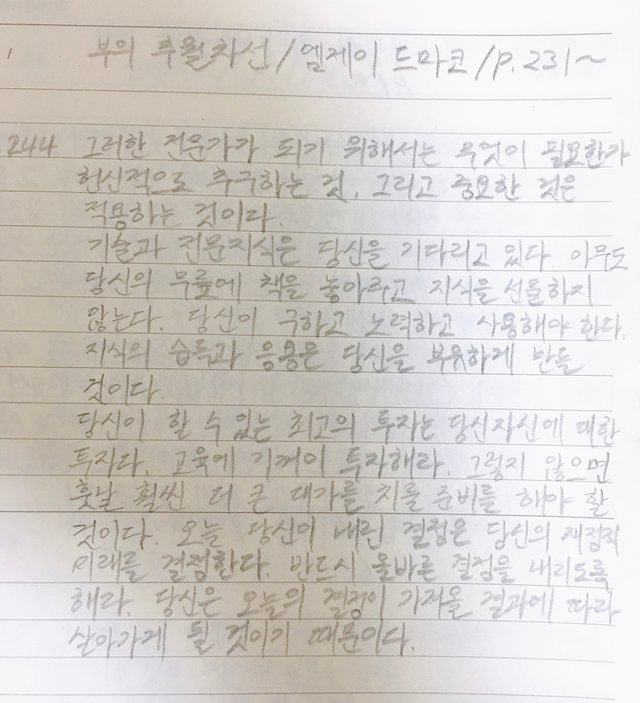 1 부의 추월차선/엠제이 드마코/p.231~
244 그러한 전문가가 되기 위해서는 무엇이 필요한가
헌신적으로 추구하는 것, 그리고 중요한 것은
적용하는 것이다.
기술과 전문지식은 당신을 기다리고 있다. 아무도
당신의 무릎에 책을 놓아주고 지식을 선물하지
않는다. 당신이 구하고 노력하고 사용해야 한다.
지식의 습득과 응용은 당신을 부유하게 만들
것이다.
당신이 할 수 있는 최고의 투자는 당신자신에 대한
투자다. 교육에 기꺼이 투자해라. 그렇지 않으면
훗날 훨씬 더 큰 대가를 치를 준비를 해야 할
것이다. 오늘 당신이 내린 결정은 당신의 재정적
미래를 결정한다. 반드시 올바른 결정을 내리도록
해라. 당신은 오늘의 결정이 가져올 결과에 따라
살아가게 될 것이기 때문이다.